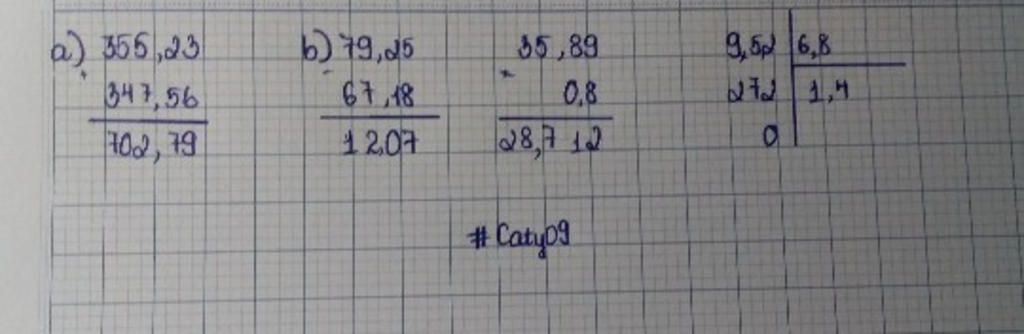 a) 355,23 b) 79,25 35,89 9,52 6,8
+ - ×
347,56 67,18 0,8 272 1,4
702,79 12,07 28,7 12 0
#Caty09